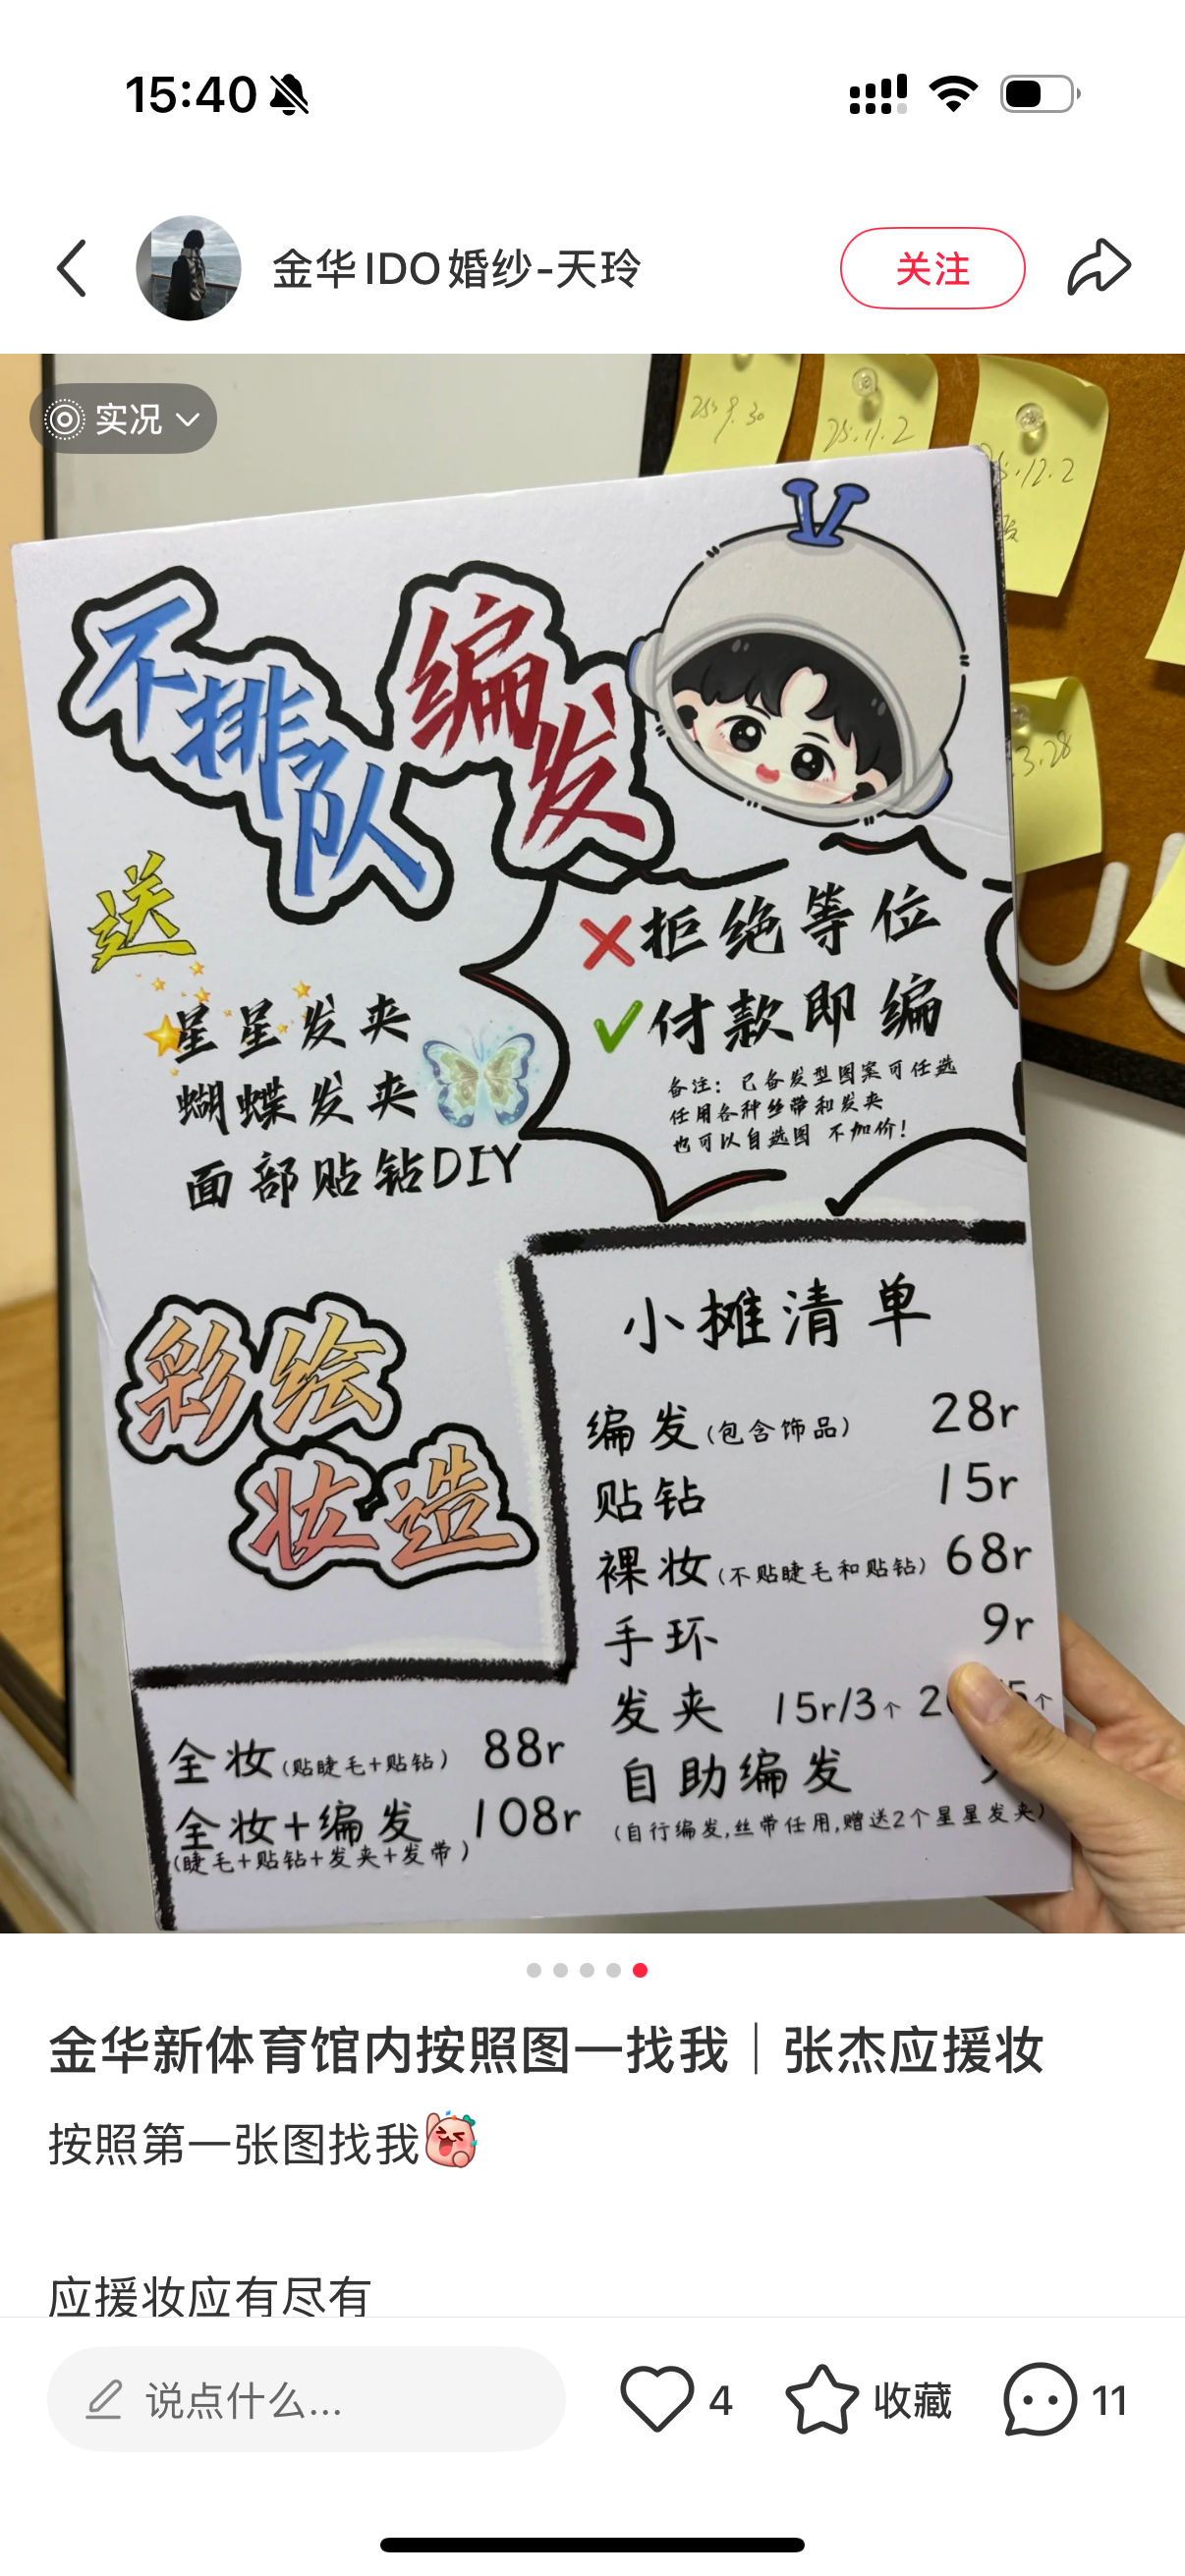 15:40
金华IDO婚纱-天玲
关注
实况
25.9.30
25.11.2
.12.2
.3.28
不排队
编发
送
星星发夹
蝴蝶发夹
面部贴钻DIY
❌拒绝等位
✔付款即编
备注：已备发型图案可任选
任用各种丝带和发夹
也可以自选图 不加价！
彩绘
妆造
小摊清单
编发(包含饰品) 28r
贴钻 15r
裸妆(不贴睫毛和贴钻) 68r
手环 9r
发夹 15r/3个 2 5个
自助编发
(自行编发,丝带任用,赠送2个星星发夹)
全妆(贴睫毛+贴钻) 88r
全妆+编发 108r
(睫毛+贴钻+发夹+发带)
金华新体育馆内按照图一找我｜张杰应援妆
按照第一张图找我
应援妆应有尽有
说点什么...
4
收藏
11